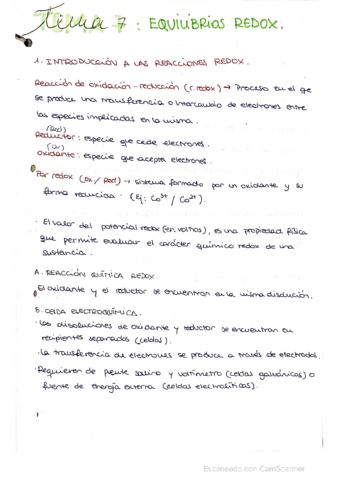 Tema 7: EQUILIBRIOS REDOX.
1. INTRODUCCIÓN A LAS REACCIONES REDOX.
Reacción de oxidación-reducción (r. redox) → Proceso en el qe
se produce una transferencia o intercambio de electrones entre
las especies implicadas en la misma.
(Red)
Reductor: especie qe cede electrones.
(Ox)
Oxidante: especie qe acepta electrones.
Par redox (Ox/Red) → sistema formado por un oxidante y su
forma reducida. (Ej: Co³⁺/Co²⁺).
· El valor del potencial redox (en voltios), es una propiedad física
que permite evaluar el carácter químico redox de una
sustancia.
A. REACCIÓN QUÍMICA REDOX.
El oxidante y el reductor se encuentran en la misma disolución.
B. CELDA ELECTROQUÍMICA.
· Las disoluciones de oxidante y reductor se encuentran en
recipientes separados (celdas).
· La transferencia de electrones se produce a través de electrodos.
· Requieren de puente salino y voltímetro (celdas galvánicas) o
fuente de energía externa (celdas electrolíticas).
Escaneado con CamScanner